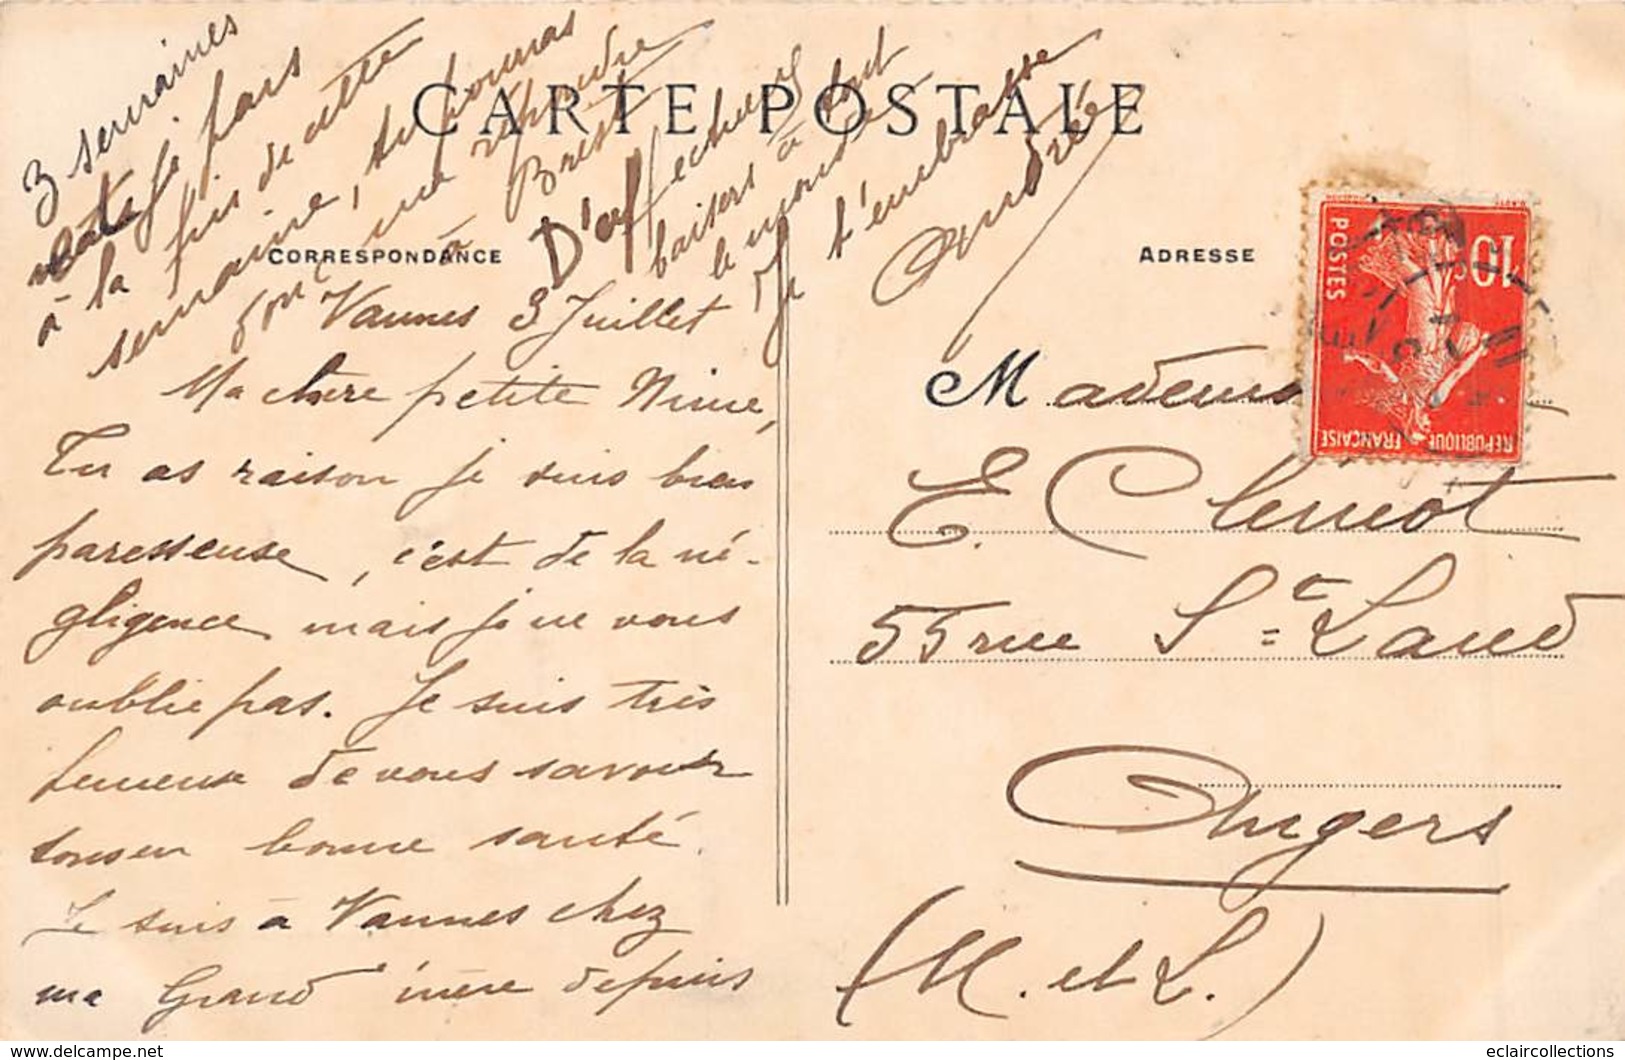 CARTE POSTALE
CORRESPONDANCE
ADRESSE
Vannes 3 Juillet
Ma chere petite Ninie,
Tu as raison je suis bien
paresseuse, c'est de la né-
gligence mais je ne vous
oublie pas. Je suis très
heureuse de vous savoir
tous en bonne santé.
Je suis à Vannes chez
ma Grand'mère depuis
3 semaines
mais je pars
à la fin de cette
semaine, tu pourras
donc me répondre
à Brest
D'affectueux
baisers à tout
le monde
Je t'embrasse
Andrée
Mademois
E. Clenet
55 rue Ste Laud
Angers
(M. et L.)
10c
POSTES
REPUBLIQUE FRANÇAISE
eclaircollections